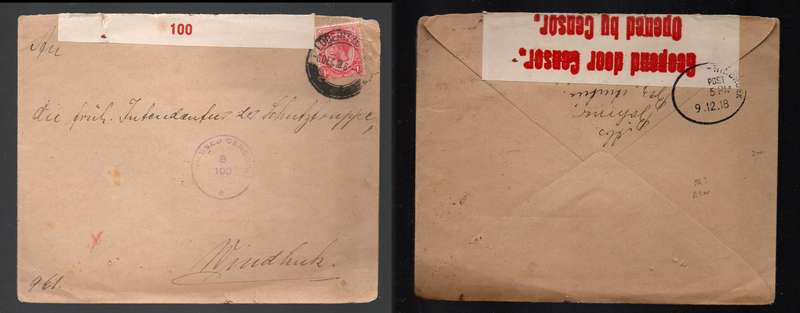 100
An
die früh. Intendantur der Schutztruppe,
PASSED CENSOR
B
100
Windhuk.
961.
Geopend door Censor.
Opened by Censor.
WINDHUK
POST
5 PM
9.12.18